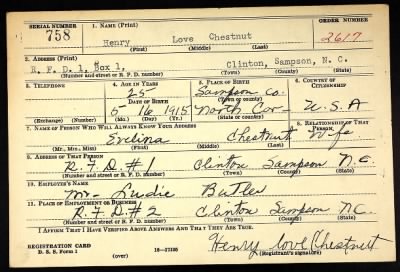 SERIAL NUMBER 1. NAME (Print) ORDER NUMBER
758 Henry Love Chestnut 2617
(First) (Middle) (Last)
2. ADDRESS (Print)
R. F. D. 1, Box 1, Clinton, Sampson, N. C.
(Number and street or R. F. D. number) (Town) (County) (State)
3. TELEPHONE 4. AGE IN YEARS 5. PLACE OF BIRTH 6. COUNTRY OF CITIZENSHIP
25 Sampson Co.
DATE OF BIRTH (Town or county)
5 16 1915 North Car- U.S.A
(Exchange) (Number) (Mo.) (Day) (Yr.) (State or country)
7. NAME OF PERSON WHO WILL ALWAYS KNOW YOUR ADDRESS 8. RELATIONSHIP OF THAT PERSON
Evelina Chestnut Wife
(Mr., Mrs., Miss) (First) (Middle) (Last)
9. ADDRESS OF THAT PERSON
R.F.D. #1 Clinton Sampson N.C.
(Number and street or R. F. D. number) (Town) (County) (State)
10. EMPLOYER'S NAME
Mr- Ludie Butler
11. PLACE OF EMPLOYMENT OR BUSINESS
R.F.D. #2 Clinton Sampson N.C.
(Number and street or R. F. D. number) (Town) (County) (State)
I AFFIRM THAT I HAVE VERIFIED ABOVE ANSWERS AND THAT THEY ARE TRUE.
Henry Love Chestnut
REGISTRATION CARD
D. S. S. Form 1 (over) 16—17105 (Registrant's signature)